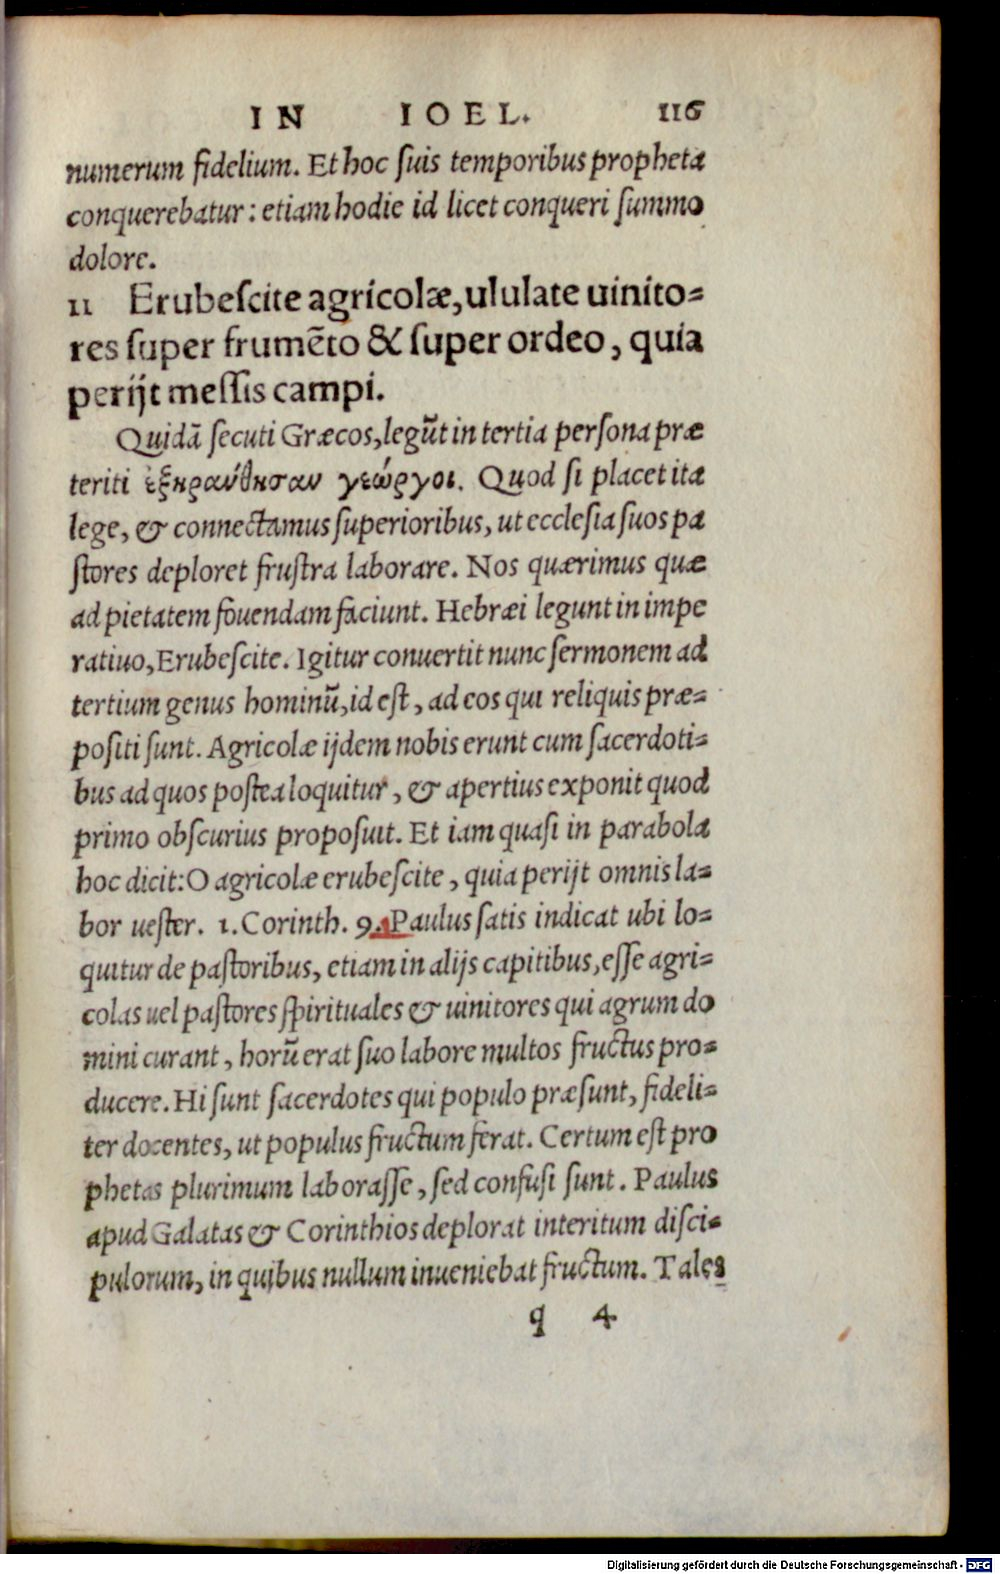 IN IOEL. 116
numerum fidelium. Et hoc ſuis temporibus propheta
conquerebatur: etiam hodie id licet conqueri ſummo
dolore.
11 Erubeſcite agricolæ, ululate uinito=
res ſuper frumēto & ſuper ordeo, quia
perijt meſſis campi.
Quidā ſecuti Græcos, legūt in tertia perſona præ
teriti ἐξηρανθησαν γεώργοι. Quod ſi placet ita
lege, & connectamus ſuperioribus, ut eccleſia ſuos pa
ſtores deploret fruſtra laborare. Nos quærimus quæ
ad pietatem fouendam faciunt. Hebræi legunt in impe
ratiuo, Erubeſcite. Igitur conuertit nunc ſermonem ad
tertium genus hominū, id eſt, ad eos qui reliquis præ=
poſiti ſunt. Agricolæ ijdem nobis erunt cum ſacerdoti=
bus ad quos poſtea loquitur, & apertius exponit quod
primo obſcurius propoſuit. Et iam quaſi in parabola
hoc dicit: O agricolæ erubeſcite, quia perijt omnis la=
bor ueſter. 1. Corinth. 9. Paulus ſatis indicat ubi lo=
quitur de paſtoribus, etiam in alijs capitibus, eſſe agri=
colas uel paſtores ſpirituales & uinitores qui agrum do
mini curant, horū erat ſuo labore multos fructus pro=
ducere. Hi ſunt ſacerdotes qui populo præſunt, fideli=
ter docentes, ut populus fructum ferat. Certum eſt pro
phetas plurimum laboraſſe, ſed confuſi ſunt. Paulus
apud Galatas & Corinthios deplorat interitum diſci=
pulorum, in quibus nullum inueniebat fructum. Tales
q 4
Digitalisierung gefördert durch die Deutsche Forschungsgemeinschaft - DFG